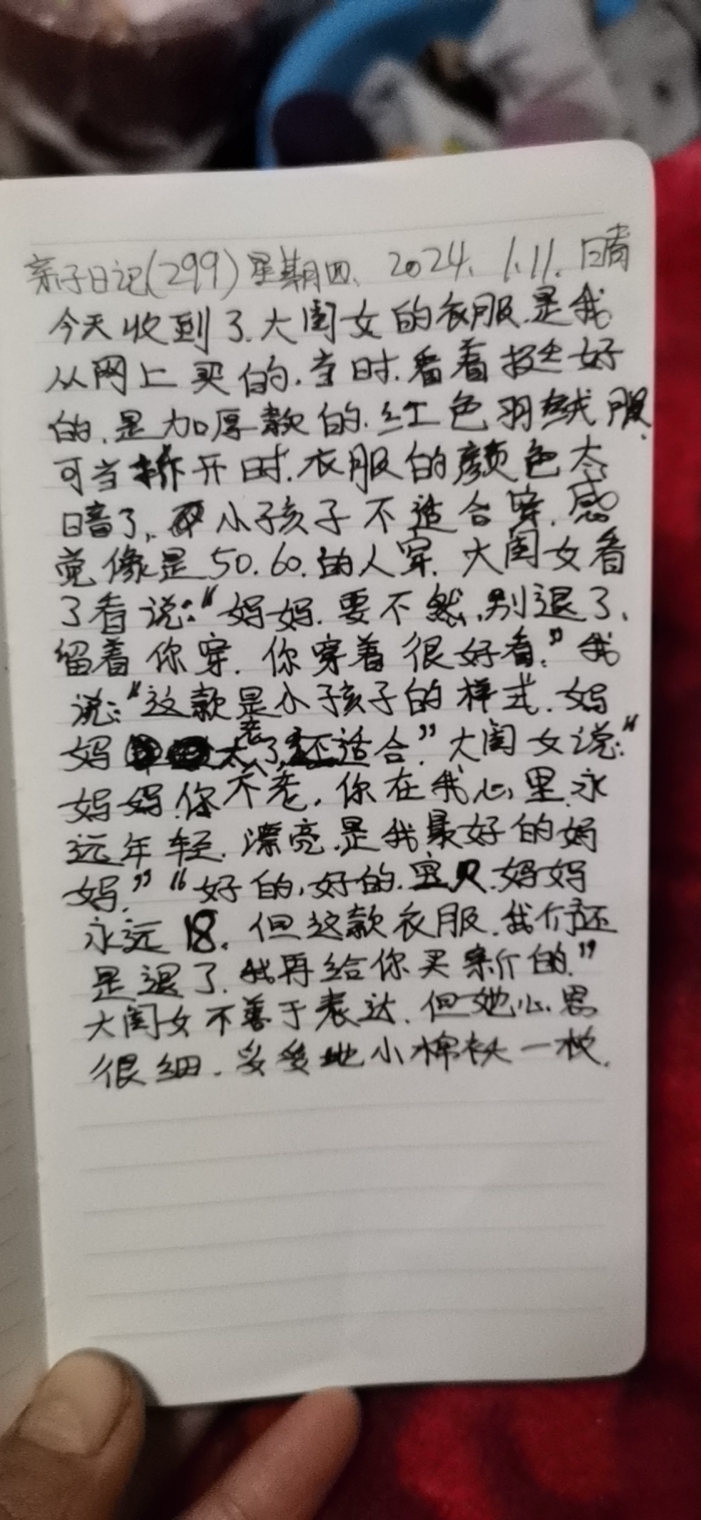 亲子日记(299)星期四、2024.1.11.晴
今天收到了.大闺女的衣服.是我
从网上买的.当时.看着挺好
的.是加厚款的.红色羽绒服.
可当拆开时.衣服的颜色太
暗了,小孩子不适合穿.感
觉像是50.60.的人穿.大闺女看
了看说:“妈妈.要不然,别退了、
留着你穿.你穿着很好看.”我
说:“这款是小孩子的样式.妈
妈太老了,不适合”大闺女说:“
妈妈.你不老,你在我心里.永
远年轻.漂亮.是我最好的妈
妈.”“好的,好的.宝贝.妈妈
永远18.但这款衣服.我们还
是退了.我再给你买新的.”
大闺女不善于表达.但她心思
很细.地小棉袄一枚.